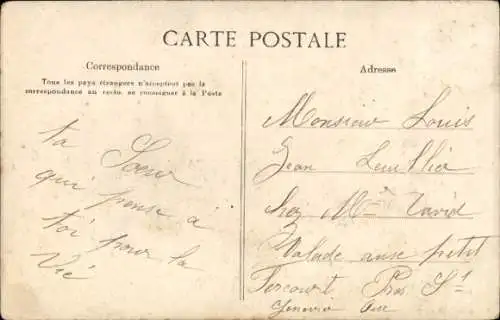 CARTE POSTALE
Correspondance
Tous les pays étrangers n'acceptent pas la
correspondance au recto, se renseigner à la Poste
Adresse
ta Sœur
qui pense à
toi pour la
Vie
Monsieur Louis
Jean
chez Mme David
Valade petit
Fercourt Près Ste
Geneviève Oise